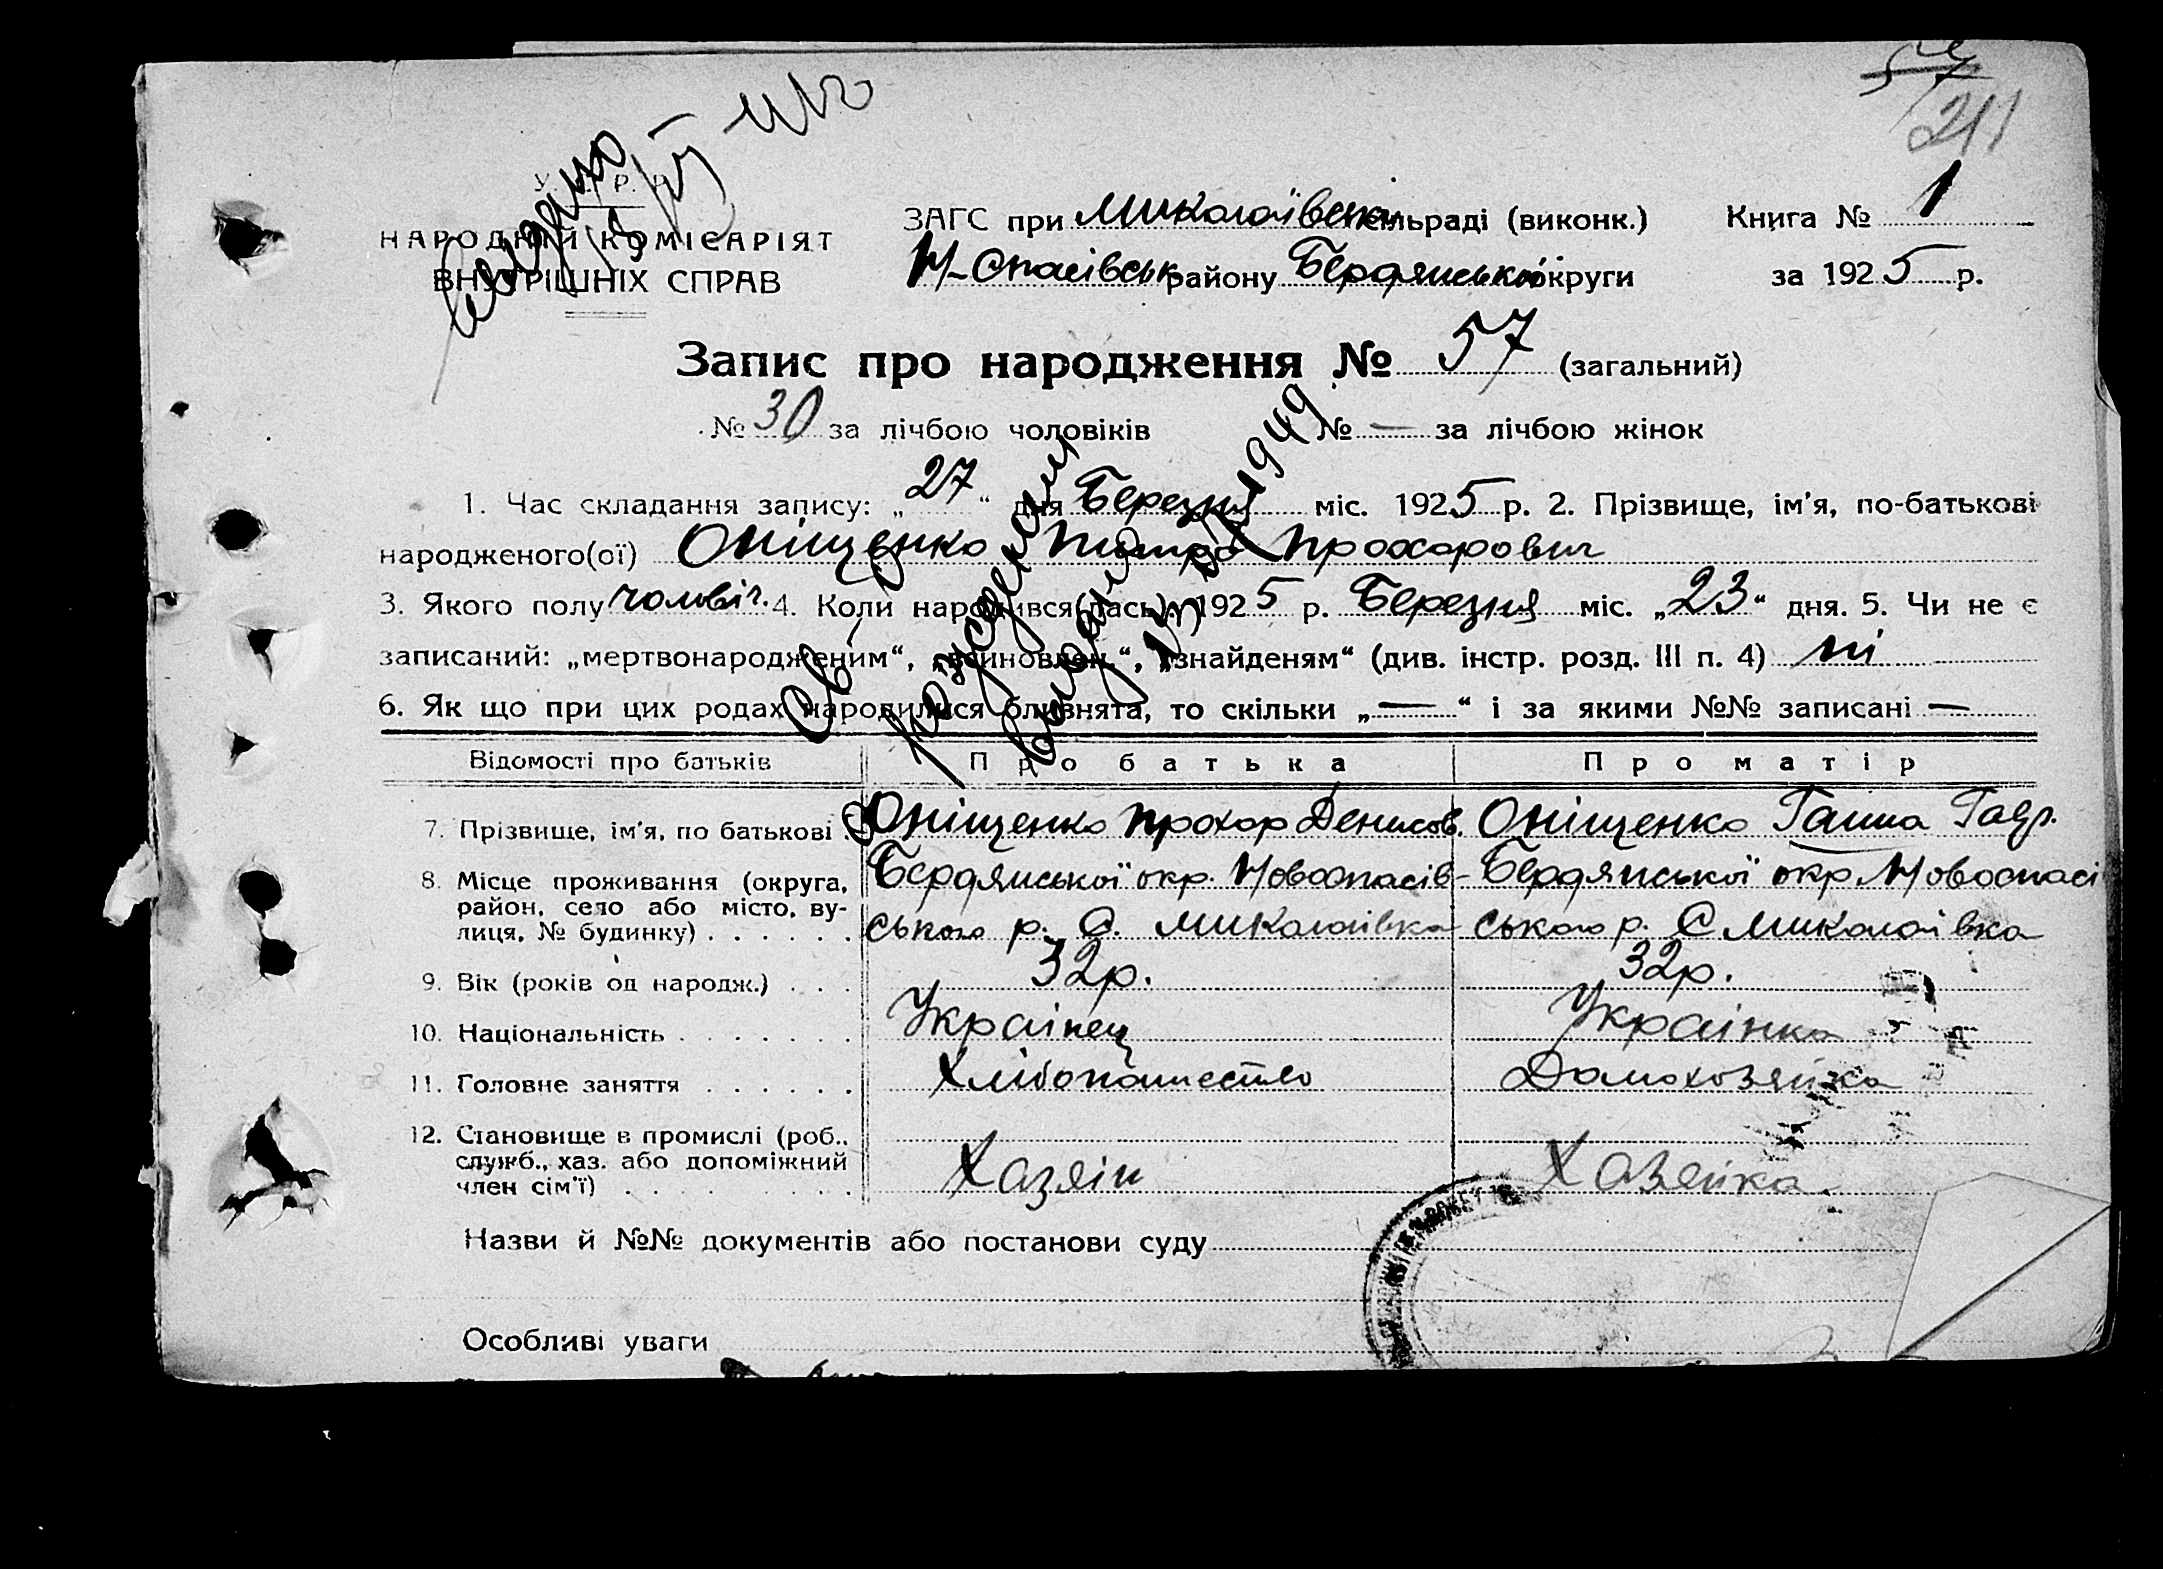 211
У. С. Р. Р.
НАРОДНИЙ КОМІСАРІЯТ
ВНУТРІШНІХ СПРАВ
ЗАГС при Миколаївській сільраді (виконк.) Книга № 1
Н-Спасівськ району Бердянської округи за 1925 р.
Запис про народження № 57 (загальний)
№ 30 за лічбою чоловіків № — за лічбою жінок
1. Час складання запису: „27“ дня Березня міс. 1925 р. 2. Прізвище, ім'я, по-батькові
народженого(ої) Оніщенко Питро Прохорович
3. Якого полу чоловіч. 4. Коли народився(лась) 1925 р. Березня міс. „23“ дня. 5. Чи не є
записаний: „мертвонародженим“, „всиновлен.“, „знайденям“ (див. інстр. розд. III п. 4) ні
6. Як що при цих родах народилися близнята, то скільки „—“ і за якими №№ записані —
Св, о
рождении
выдано
1949
Відомості про батьків Про батька Про матір
7. Прізвище, ім'я, по батькові Оніщенко Прохор Денисов. Оніщенко Ганна Гавр.
8. Місце проживання (округа, Бердянської окр. Новоспасів- Бердянської окр Новоспасі
район, село або місто, ву-
лиця, № будинку) ського р. С. Миколаївка ського р. С Миколаївка
9. Вік (років од народж.) 32р. 32р.
10. Національність Українец Українка
11. Головне заняття Хлібопашество Домохозяйка
12. Становище в промислі (роб.,
служб., хаз. або допоміжний Хазяін Хазяйка
член сім'ї)
Назви й №№ документів або постанови суду
Особливі уваги